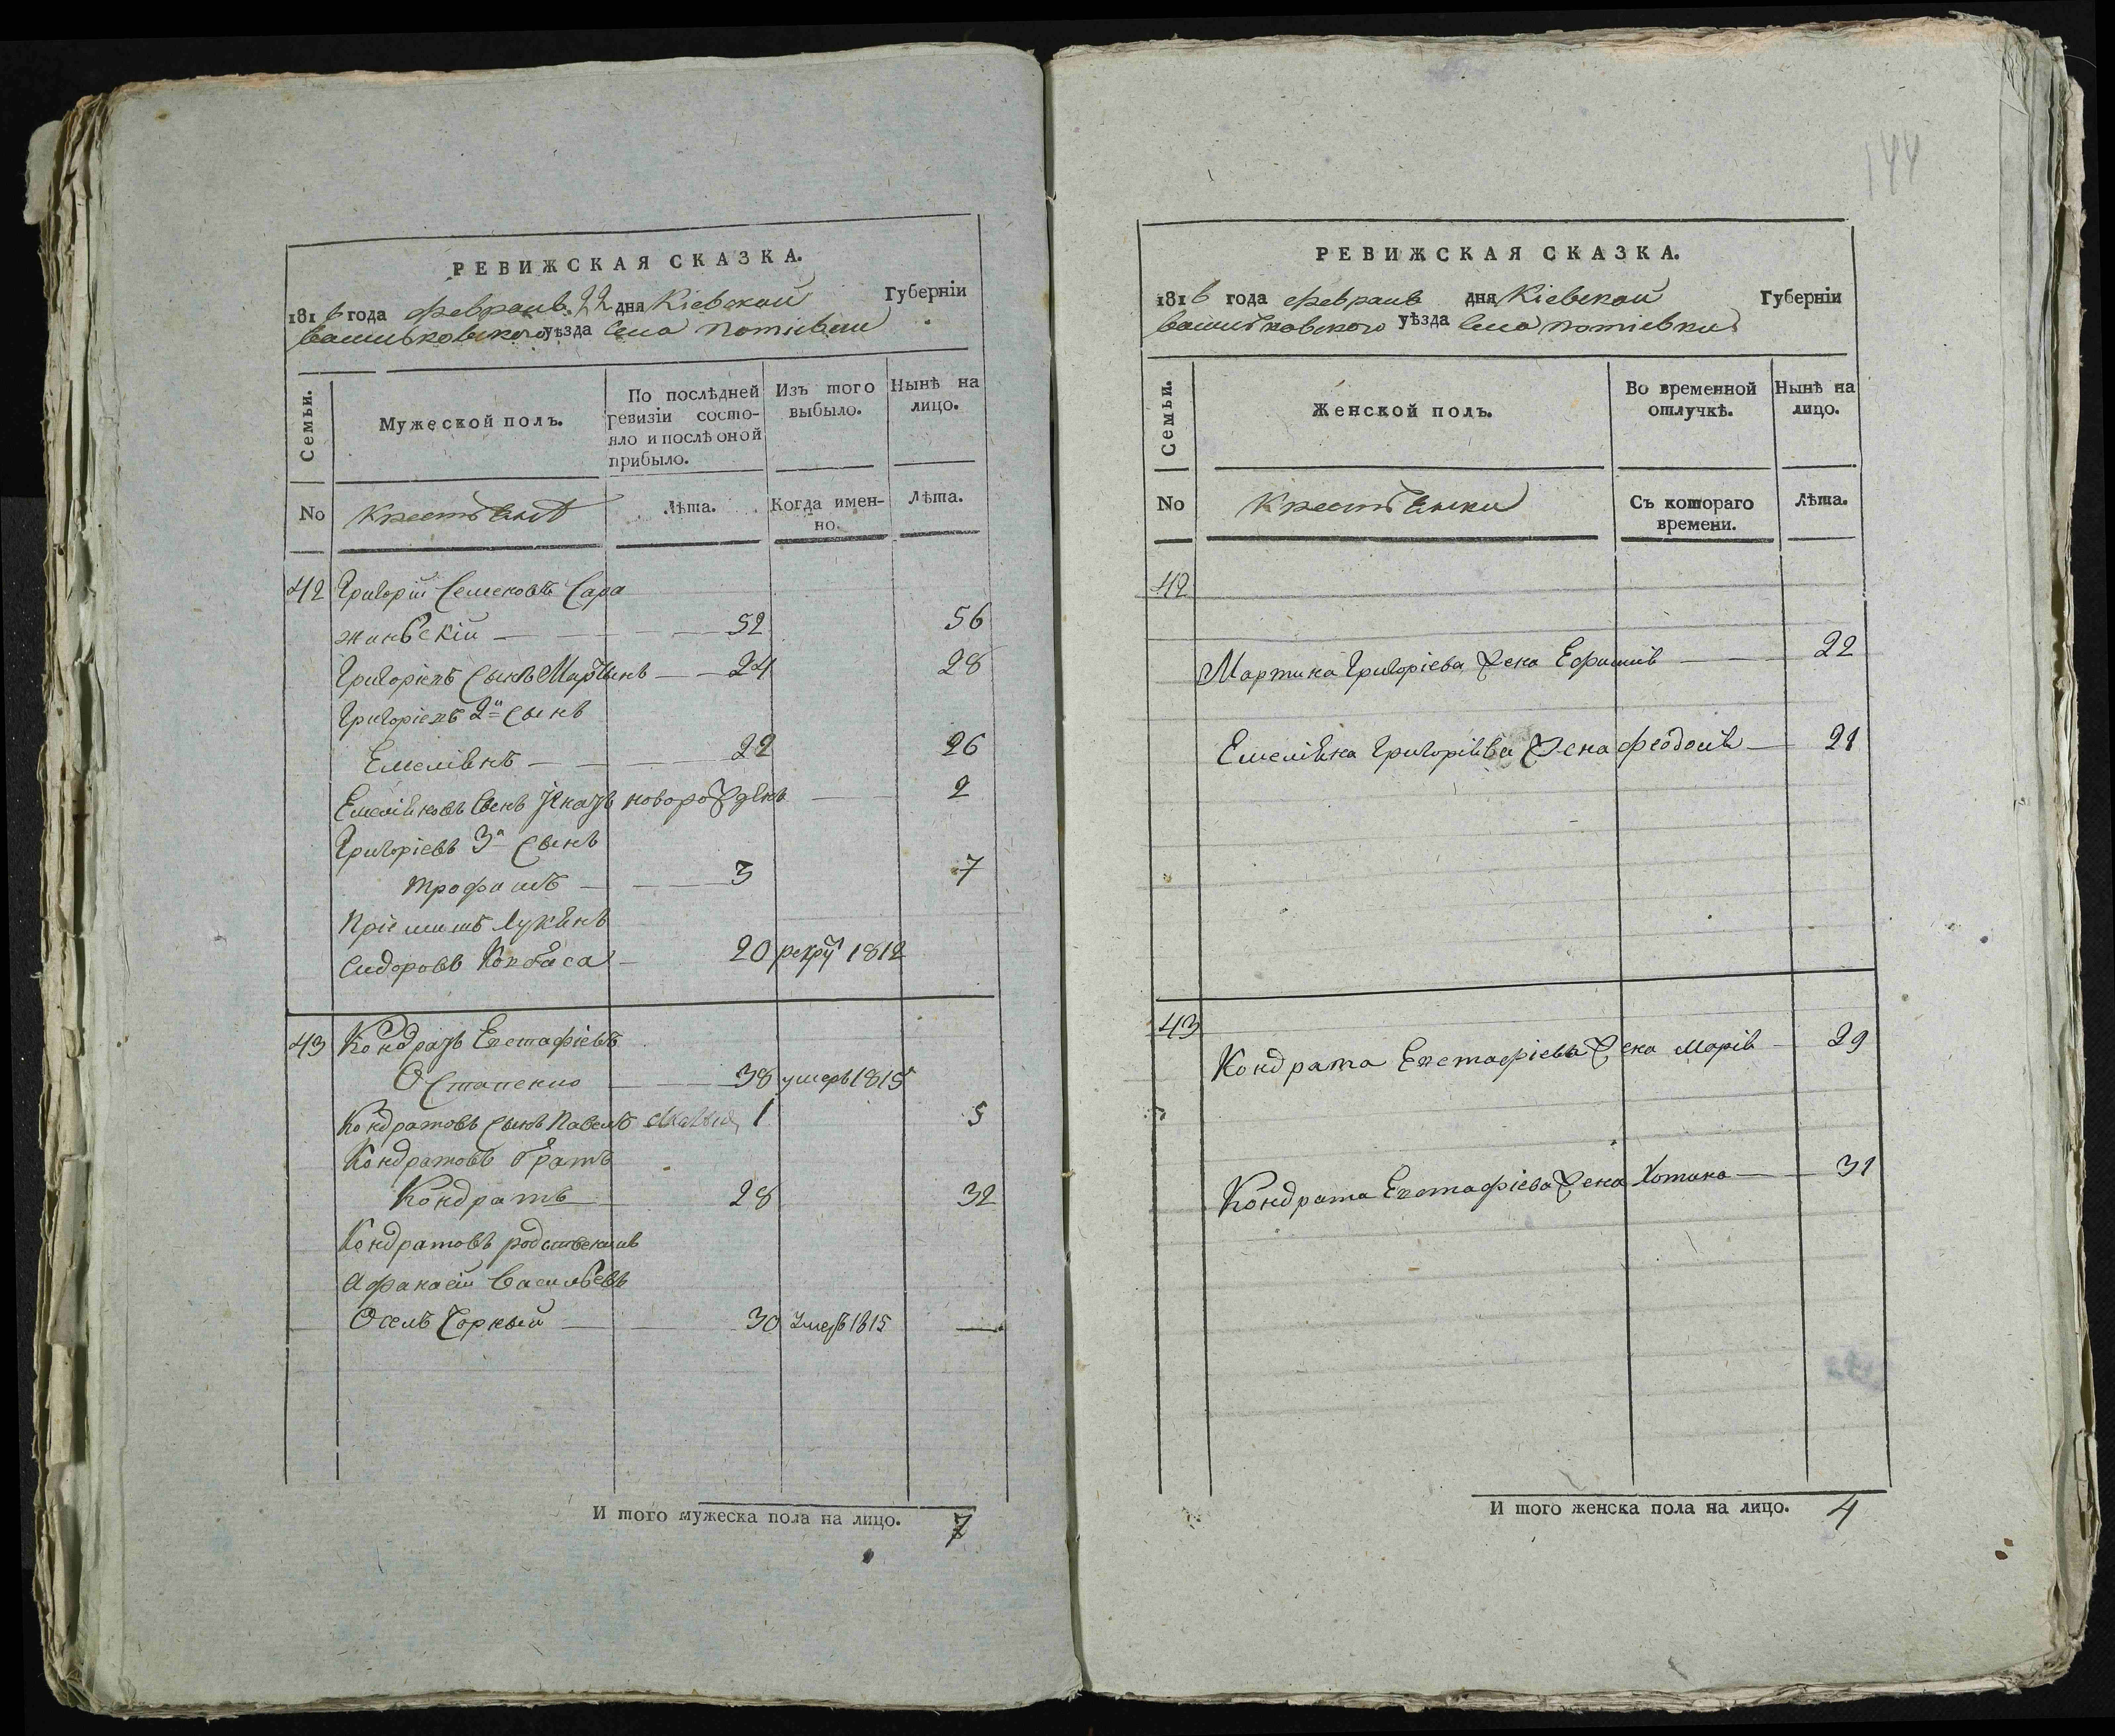 РЕВИЖСКАЯ СКАЗКА.
1816 года февраля 22 дня Кіевской Губерніи
васильковского уѣзда села Потіевки
Семьи.
Мужеской полъ.
По послѣдней ревизіи состо-
яло и послѣ оной
прибыло.
Изъ того
выбыло.
Нынѣ на
лицо.
No
Крестьяне
Лѣта.
Когда имен-
но.
Лѣта.
42 Григорій Семеновъ Сара
жинскій 52 56
Григоріевъ сынъ Мартынъ 24 28
Григоріевъ 2й сынъ
Емеліянъ 22 26
Емеліяновъ сынъ Игнатъ новорожденъ 2
Григоріевъ 3й сынъ
трофимъ 3 7
Пріемишъ Лукянъ
Сидоровъ Ковбаса 20 рекру 1812
43 Кондратъ Евстафіевъ
Остапенко 38 умеръ 1815
Кондратовъ сынъ Павелъ 1 5
Кондратовъ братъ
Кондратъ 28 32
Кондратовъ родственникъ
Афанасій Васильевъ
30 умеръ 1815 —
И того мужеска пола на лицо. 7
144
РЕВИЖСКАЯ СКАЗКА.
1816 года февраля дня Кіевской Губерніи
васильковского уѣзда села потіевки
Семьи.
Женской полъ.
Во временной
отлучкѣ.
Нынѣ на
лицо.
No
Крестьянки
Съ котораго
времени.
Лѣта.
42
Мартина Григоріева жена Ефимія 22
Емеліяна Григоріева жена феодосія 21
43
Кондрата Евстафіева жена Марія 29
Кондрата Евстафіева жена 31
И того женска пола на лицо. 4